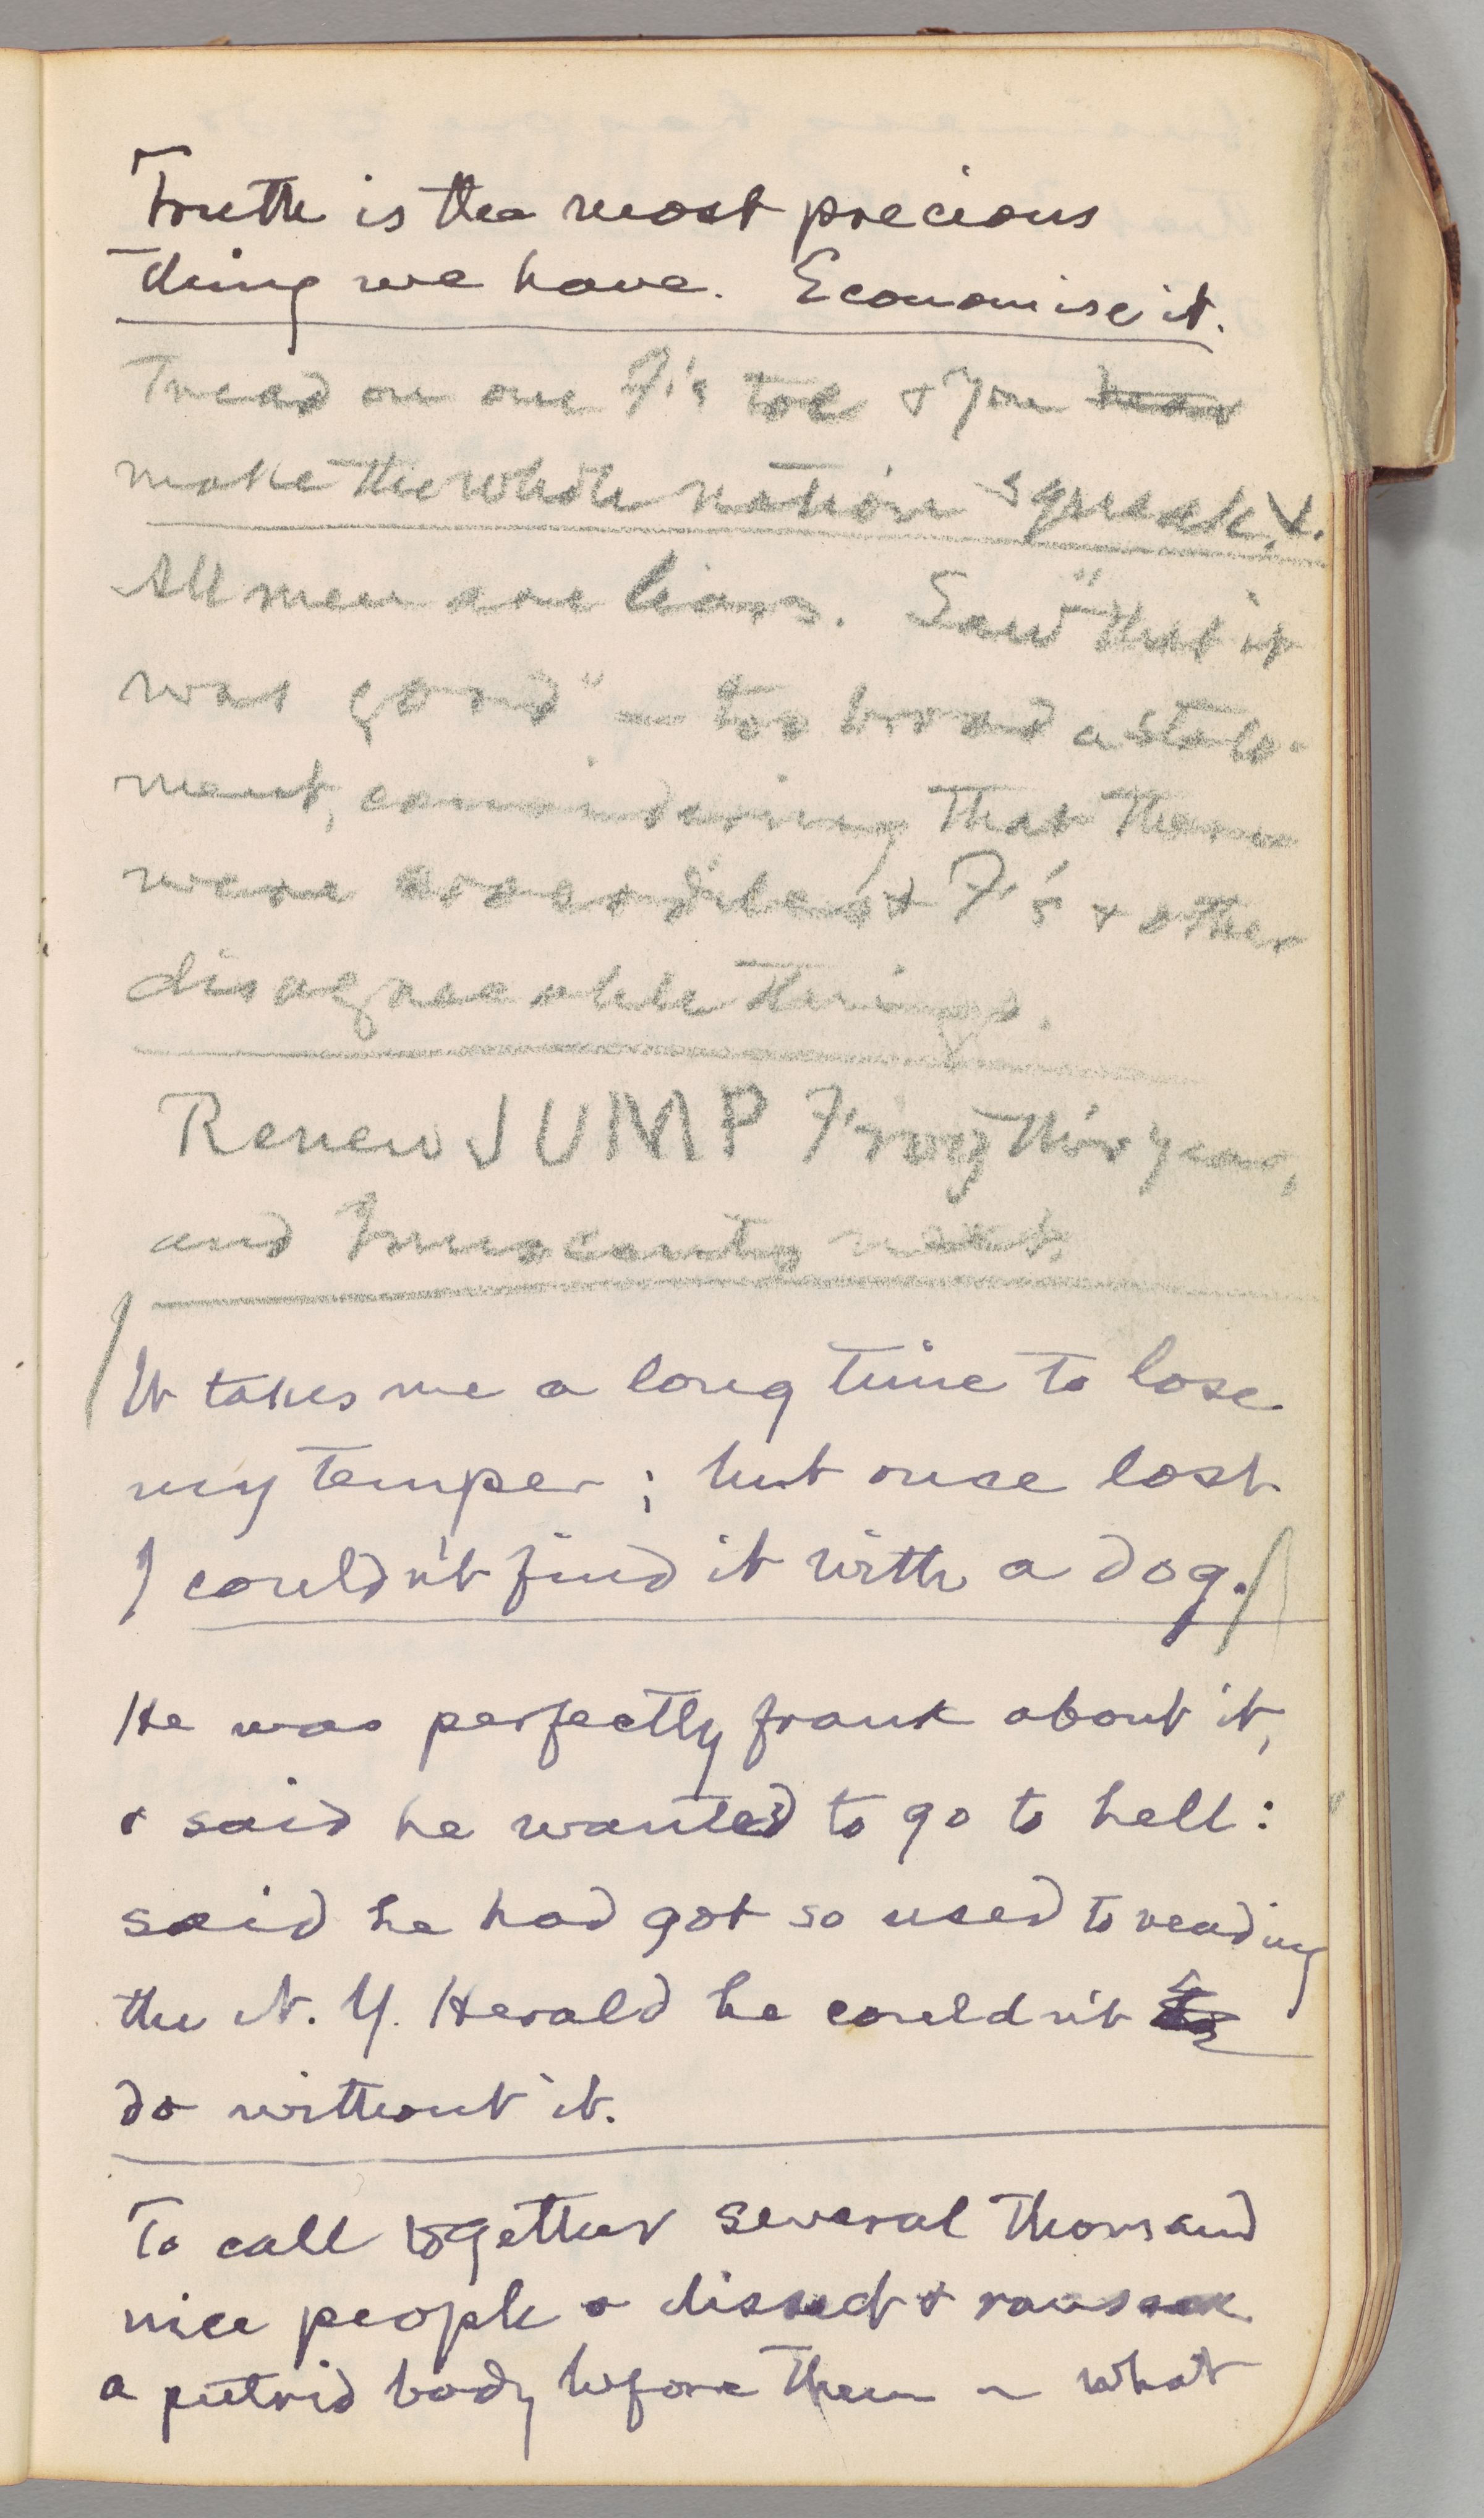 Truth is the most precious
thing we have. Economise it.
Tread on one F's toe & you hear
make the whole nation squeak, &.
All men are liars. Saw "that it
was good" — too broad a state-
ment, considering that there
were crocodiles & F's & other
disagreeable things.
Renew JUMP Frog this year,
and Innocents next.
It takes me a long time to lose
my temper; but once lost
I couldn't find it with a dog.
He was perfectly frank about it,
& said he wanted to go to hell:
said he had got so used to reading
the N. Y. Herald he couldn't
do without it.
To call together several thousand
nice people & dissect & ransack
a putrid body before them — what